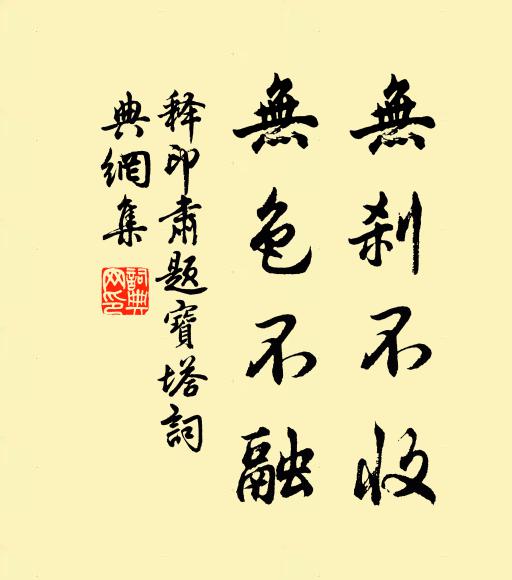 無刹不收
無色不融
释印肅題寶塔詞
典網集
詞典網印